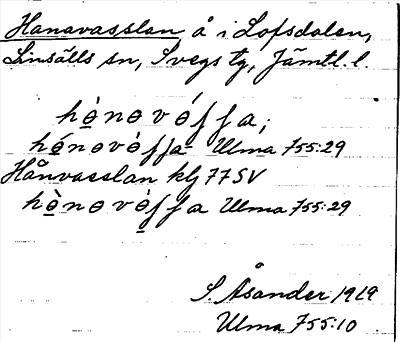 Hanavasslan, å i Lofsdalen,
Linsälls sn, Svegs tg, Jämtl. l.
hònɵvóffa;
hónɵvòffa Ulma 755:29
Hånvasslan klj 77 SV
hònɵvòffa Ulma 755:29
S. Åsander 1919
Ulma 755:10